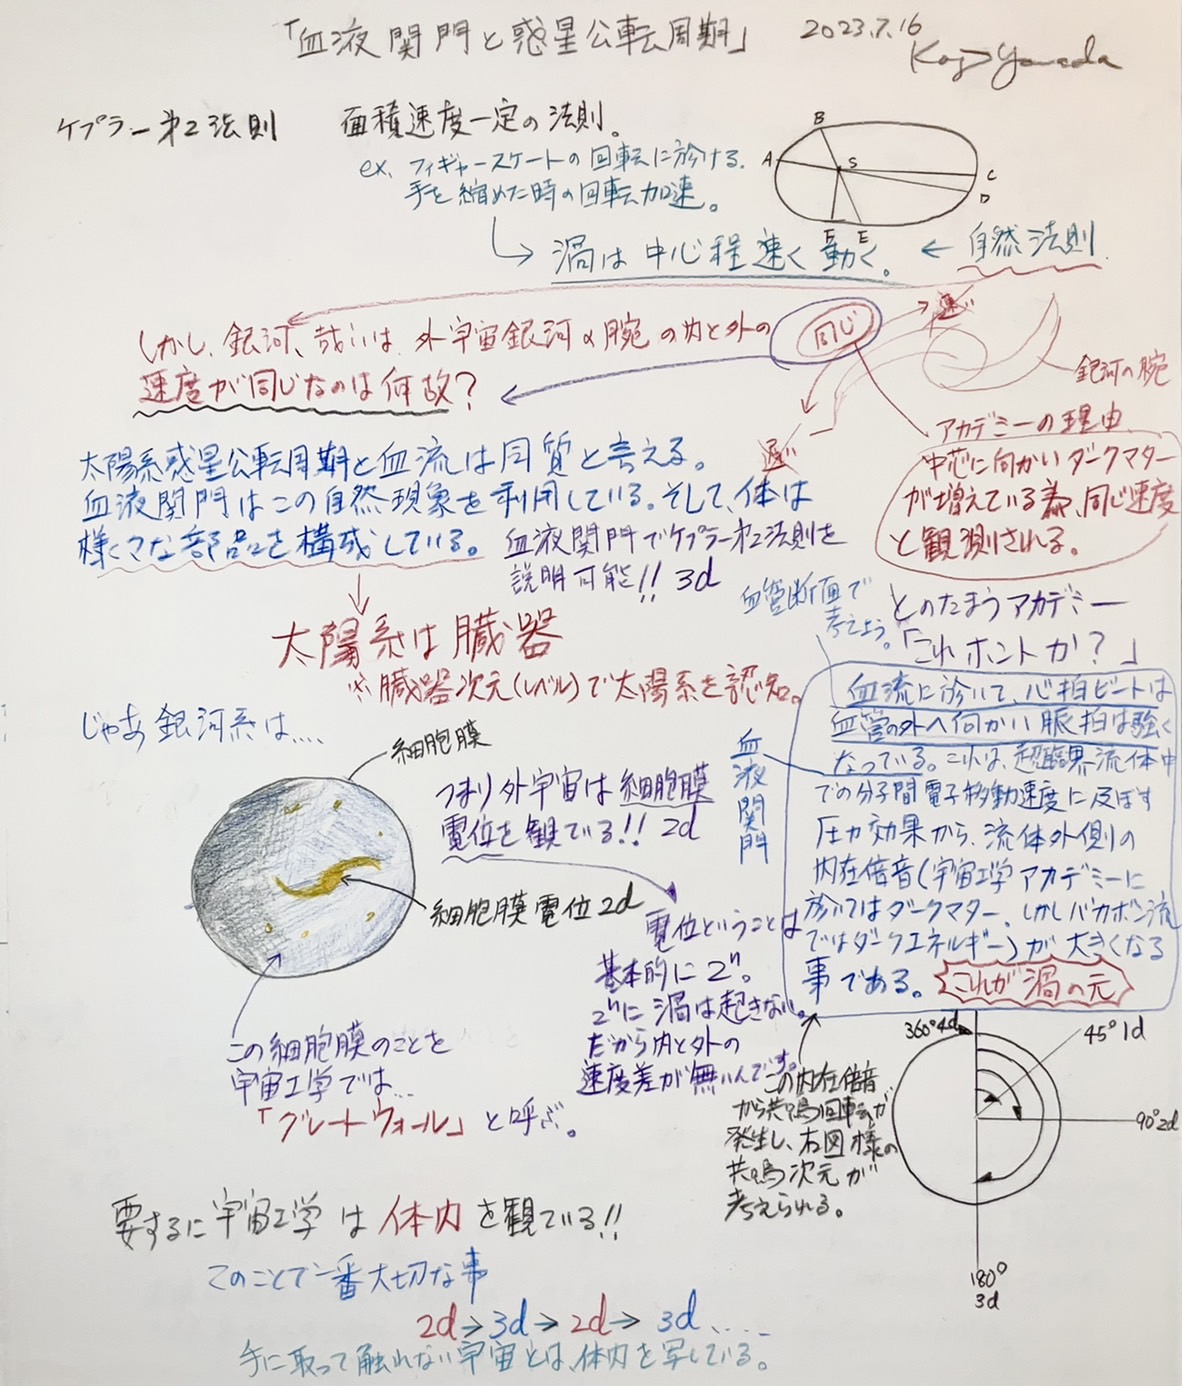 「血液関門と惑星公転周期」 2023.7.16
Koji Yamada
ケプラー第2法則 面積速度一定の法則。
ex. フィギャースケートの回転に於ける。
手を縮めた時の回転加速。
A B S C D E F
渦は中心程速く動く。 ← 自然法則
しかし、銀河、或いは外宇宙銀河の腕の内と外の
同じ
速い
速度が同じなのは何故?
遅い
銀河の腕
アカデミーの理由
中芯に向かいダークマター
が増えている為、同じ速度
と観測される。
とのたまうアカデミー
「これホントか?」
太陽系惑星公転周期と血流は同質と言える。
血液関門はこの自然現象を利用している。そして、体は
様々な部品を構成している。
血液関門でケプラー第2法則を
説明可能!! 3d
太陽系は臓器
※臓器次元(レベル)で太陽系を認知。
血管断面で
考えよう。
血液関門
血流に於いて、心拍ビートは
血管の外へ向かい脈拍は強く
なっている。これは、超臨界流体中
での分子間電子移動速度に及ぼす
圧力効果から、流体外側の
内在倍音(宇宙工学アカデミーに
於いてはダークマター。しかしバカボン流
ではダークエネルギー)が大きくなる
事である。 これが渦の元
じゃあ銀河系は....
細胞膜
つまり外宇宙は細胞膜
電位を観ている!! 2d
細胞膜電位2d
電位ということは
基本的に2ⁿ。
2ⁿに渦は起きない。
だから内と外の
速度差が無いんです。
この細胞膜のことを
宇宙工学では...
「グレートウォール」と呼ぶ。
この内在倍音
から共鳴回転が
発生し、右図様の
共鳴次元が
考えられる。
360°4d
45°1d
90°2d
180°
3d
要するに宇宙工学は体内を観ている!!
このことで一番大切な事
2d→3d→2d→3d.....
手に取って触れない宇宙とは、体内を写している。